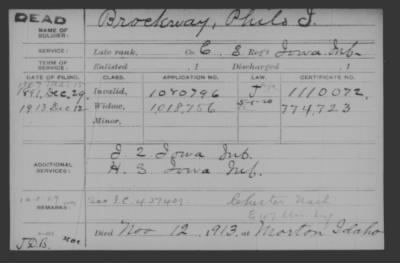 DEAD
NAME OF SOLDIER:
Brockway, Philo J.
SERVICE:
Late rank, Co. E, 8 Reg't Iowa Inf.
Enlisted , 1 Discharged , 1
DATE OF FILING. CLASS. APPLICATION NO. LAW. CERTIFICATE NO.
1891, Dec. 29. Invalid, 1080796 1110072.
1913 Dec 12 Widow, 1,018,756 774,723
Minor,
ADDITIONAL SERVICES:
I 2 Iowa Inf.
H. 3 Iowa Inf.
REMARKS:
Chester Nash
Died Nov 12, 1913, at Morton Idaho